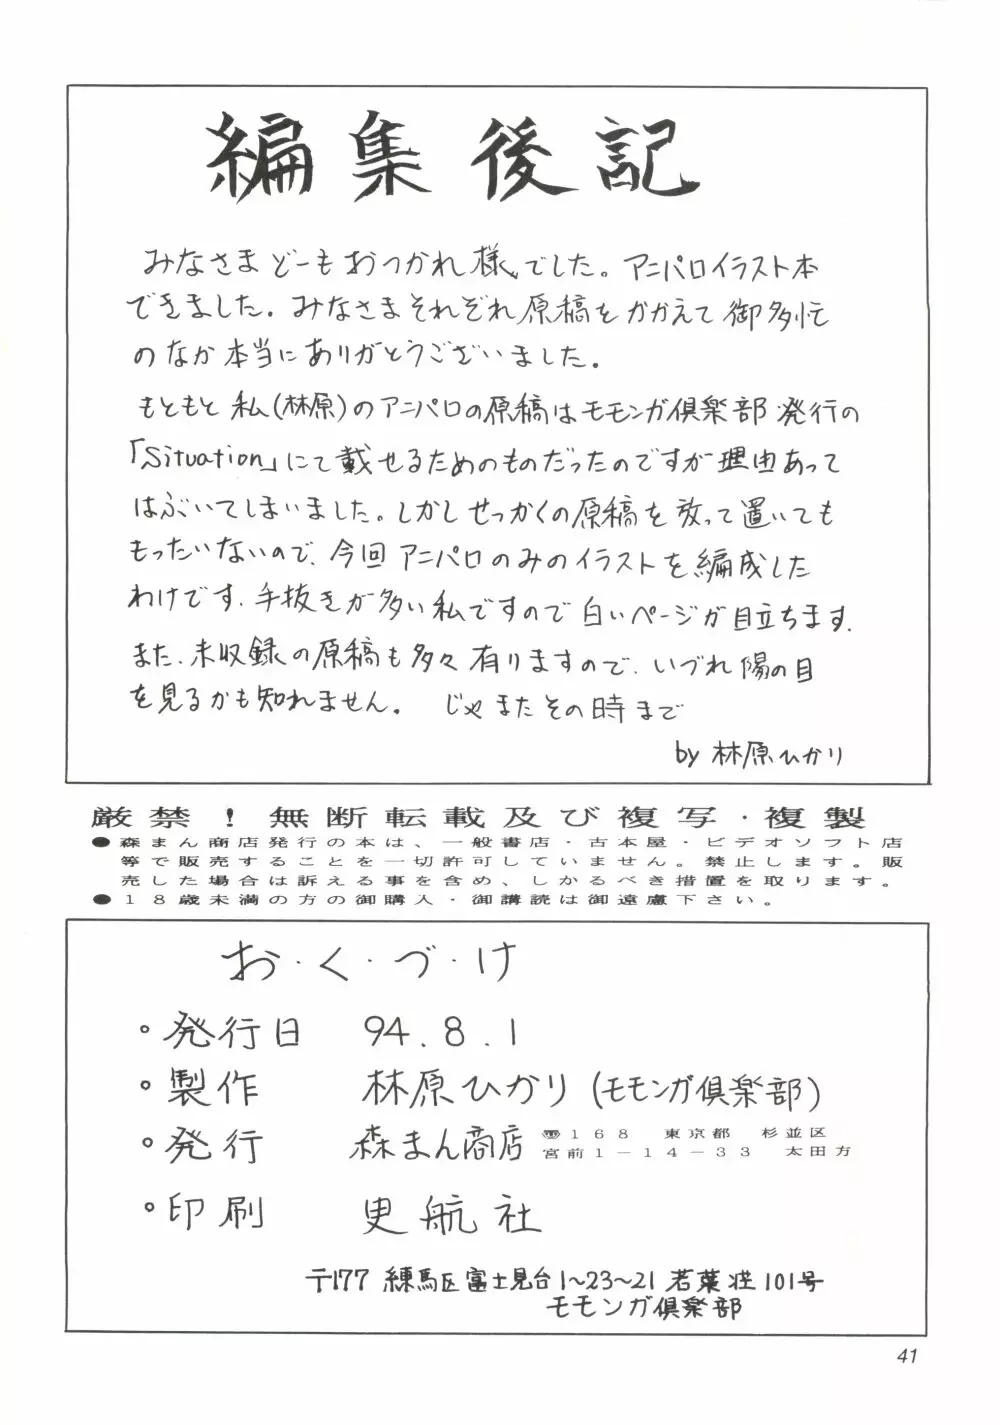 編集後記
みなさまどーもおつかれ様でした。アニパロイラスト本
できました。みなさまそれぞれ原稿をかかえて御多忙
のなか本当にありがとうございました。
もともと私(林原)のアニパロの原稿はモモンガ倶楽部発行の
「Situation」にて載せるためのものだったのですが理由あって
はぶいてしまいました。しかしせっかくの原稿を放って置いても
もったいないので、今回アニパロのみのイラストを編成した
わけです。手抜きが多い私ですので白いページが目立ちます。
また、未収録の原稿も多々有りますので、いづれ陽の目
を見るかも知れません。 じゃまたその時まで
by 林原ひかり
厳禁!無断転載及び複写・複製
●森まん商店発行の本は、一般書店・古本屋・ビデオソフト店
等で販売することを一切許可していません。禁止します。販
売した場合は訴える事を含め、しかるべき措置を取ります。
●18歳未満の方の御購入・御講読は御遠慮下さい。
お・く・づ・け
°発行日 94.8.1
°製作 林原ひかり(モモンガ倶楽部)
°発行 森まん商店 〠168 東京都 杉並区
宮前1-14-33 太田方
°印刷 史航社
〒177 練馬区富士見台1~23~21 若葉荘101号
モモンガ倶楽部
41